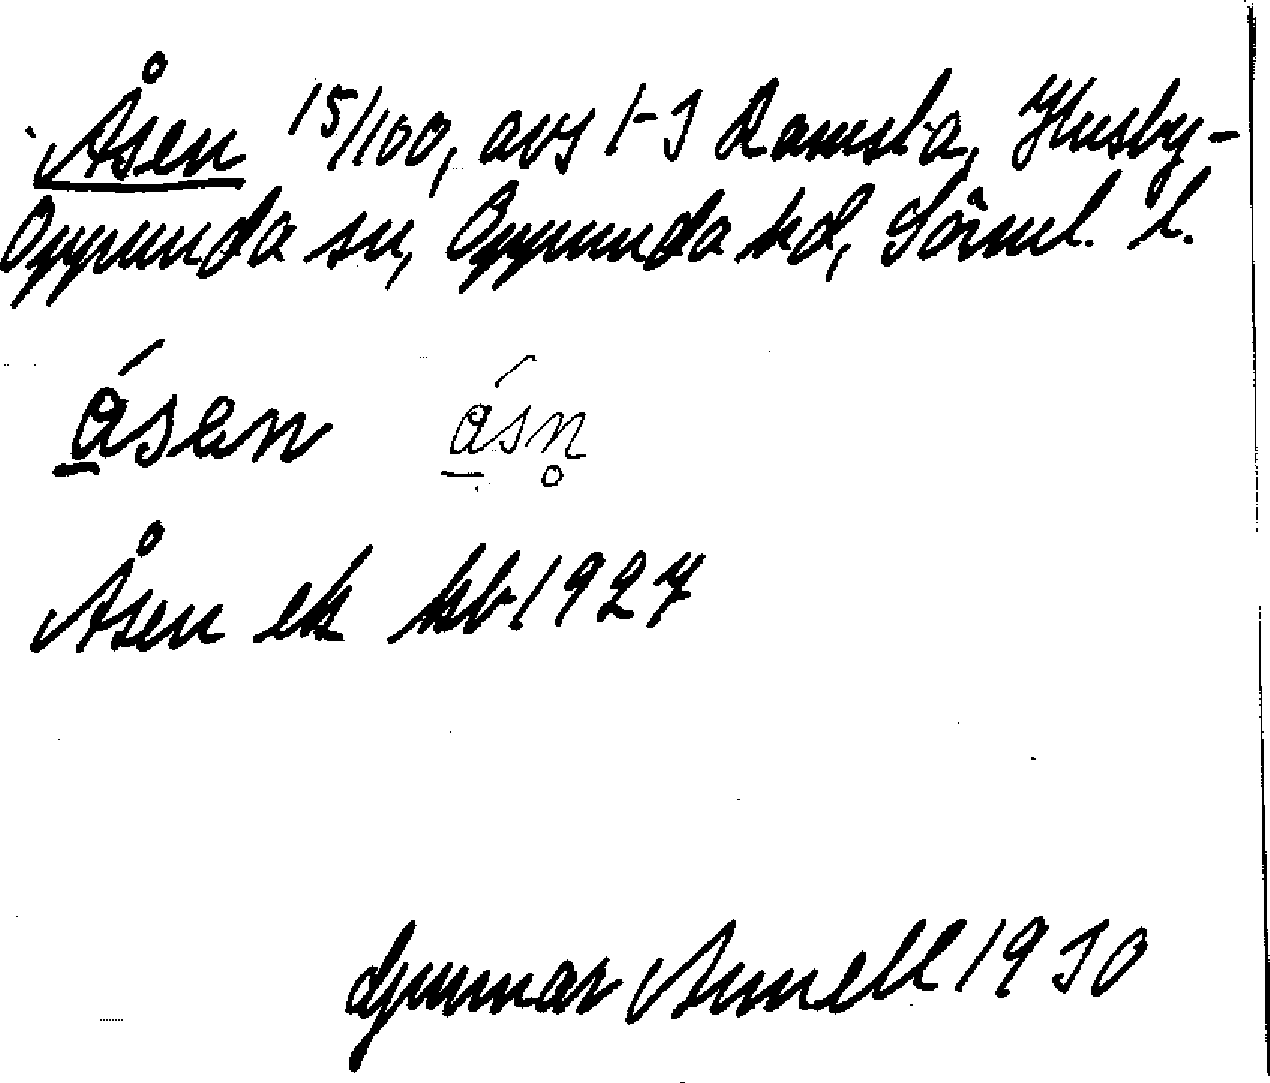 Åsen 15/100, avs 1-3 Ramsta, Husby-
Oppunda sn, Oppunda hd, Sörml. l.
ásen ásn̥
Åsen ek kb 1927
Gunnar Arnell 1930